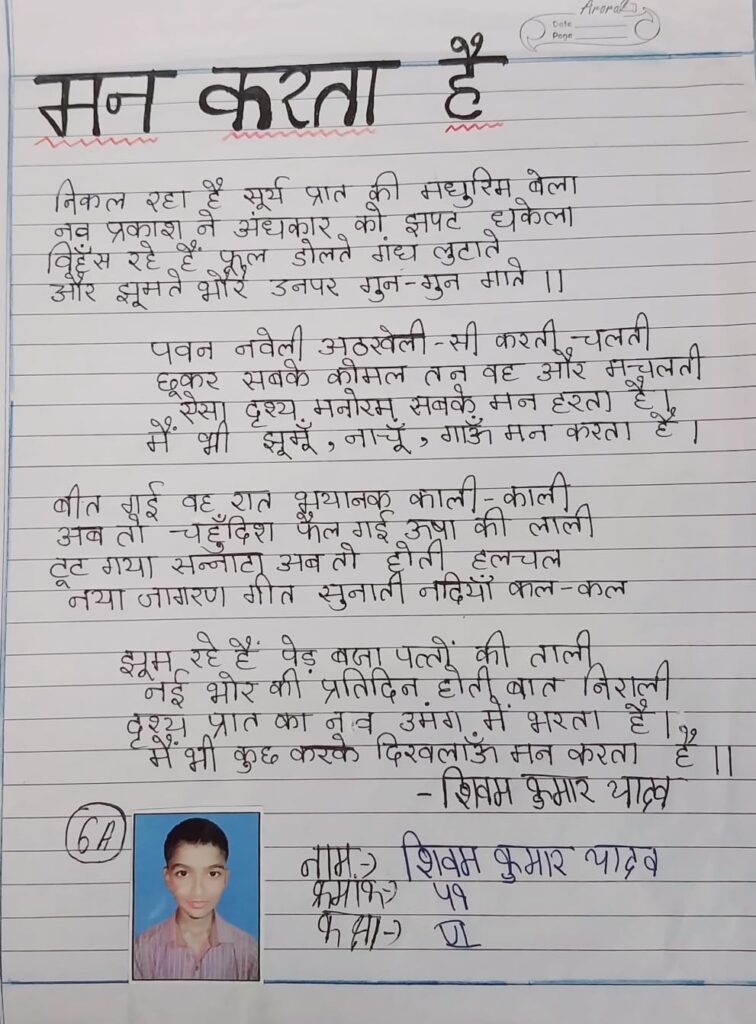 Arora
Date
Page
मन करता है
निकल रहा है सूर्य प्रात की मधुरिम बेला
नव प्रकाश ने अंधकार को झपट धकेला
विहँस रहे हैं फूल डोलते गंध लुटाते
और झूमते भौंरे उनपर गुन-गुन गाते ।।
पवन नवेली अठखेली-सी करती चलती
छूकर सबके कोमल तन वह और मचलती
ऐसा दृश्य मनोरम सबके मन हरता है।
मैं भी झूमूँ, नाचूँ, गाऊँ मन करता है।
बीत गई वह रात भयानक काली-काली
अब तो चहुँदिश फैल गई ऊषा की लाली
टूट गया सन्नाटा अब तो होती हलचल
नया जागरण गीत सुनाती नदियाँ कल-कल
झूम रहे हैं पेड़ बजा पत्तों की ताली
नई भोर की प्रतिदिन होती बात निराली
दृश्य प्रात का नव उमंग में भरता है।
मैं भी कुछ करके दिखलाऊँ मन करता है ।।
- शिवम कुमार यादव
6A
नाम -> शिवम कुमार यादव
क्रमांक -> ५१
कक्षा -> VI